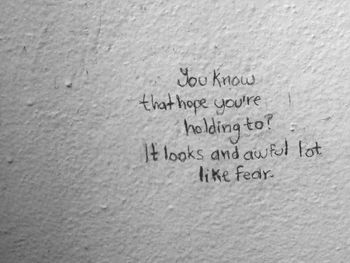 You Know
that hope you're
holding to?
It looks and awful lot
like fear.